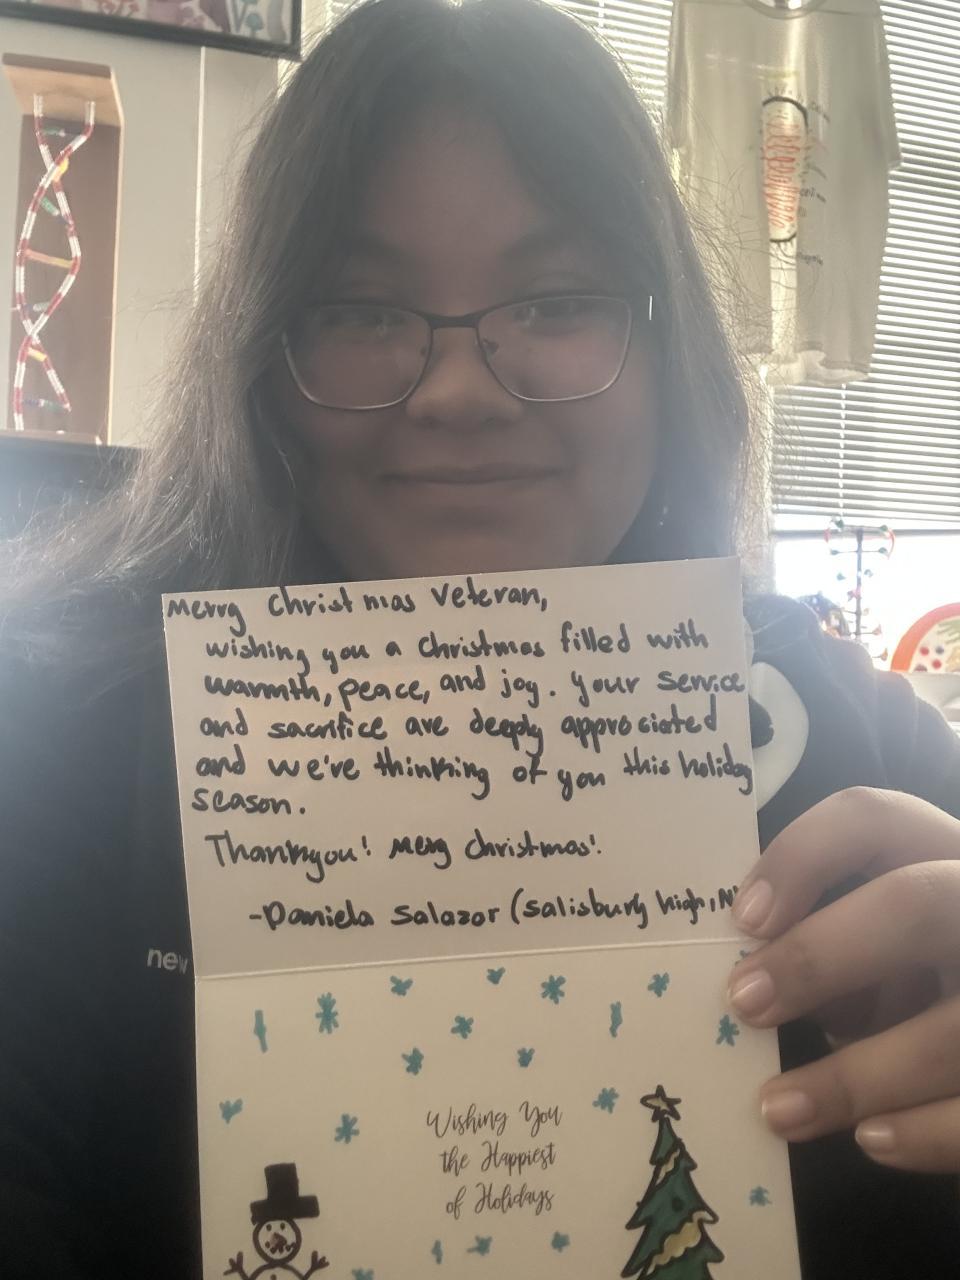 Merry Christmas Veteran,
wishing you a Christmas filled with
warmth, peace, and joy. Your service
and sacrifice are deeply appreciated
and we're thinking of you this holiday
season.
Thankyou! Merry Christmas!
-Daniela Salazar (Salisbury high, N
new
Wishing You
the Happiest
of Holidays